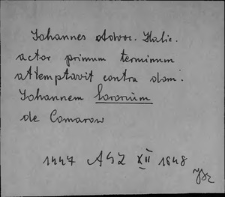 Johannes Advoc. Halic.
actor primum terminum
attemptavit contra dom.
Johannem
de Comarow
1447 AGZ XII 1848